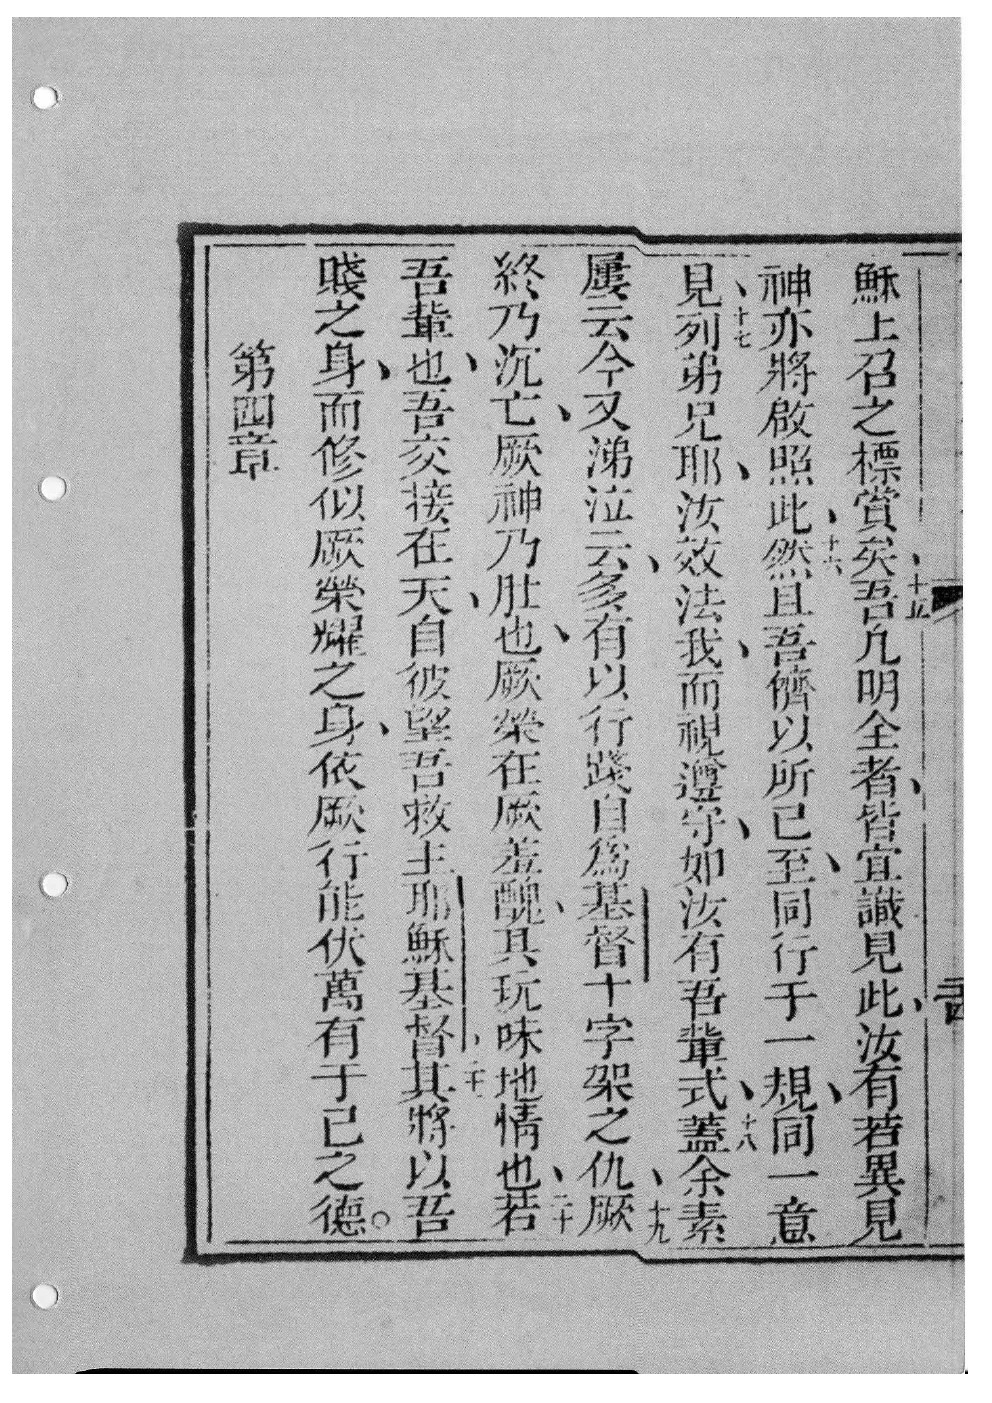 穌上召之標賞矣、十五吾凢明全者、皆宜識見此、汝有若異見
神亦將啟照此、十六然且吾儕以所已至、同行于一規、同一意
見、十七列弟兄耶、汝效法我、而視遵守、如汝有吾輩式、十八蓋余素
屢云今又涕泣云、多有以行踐自為基督十字架之仇、十九厥
終乃沉亡、厥神乃肚也、厥榮在厥羞醜、其玩味地情也、二十若
吾輩也、吾交接在天、自彼望吾救主耶穌基督、二十一其將以吾
賤之身、而修似厥榮耀之身、依厥行能伏萬有于己之德。
第四章